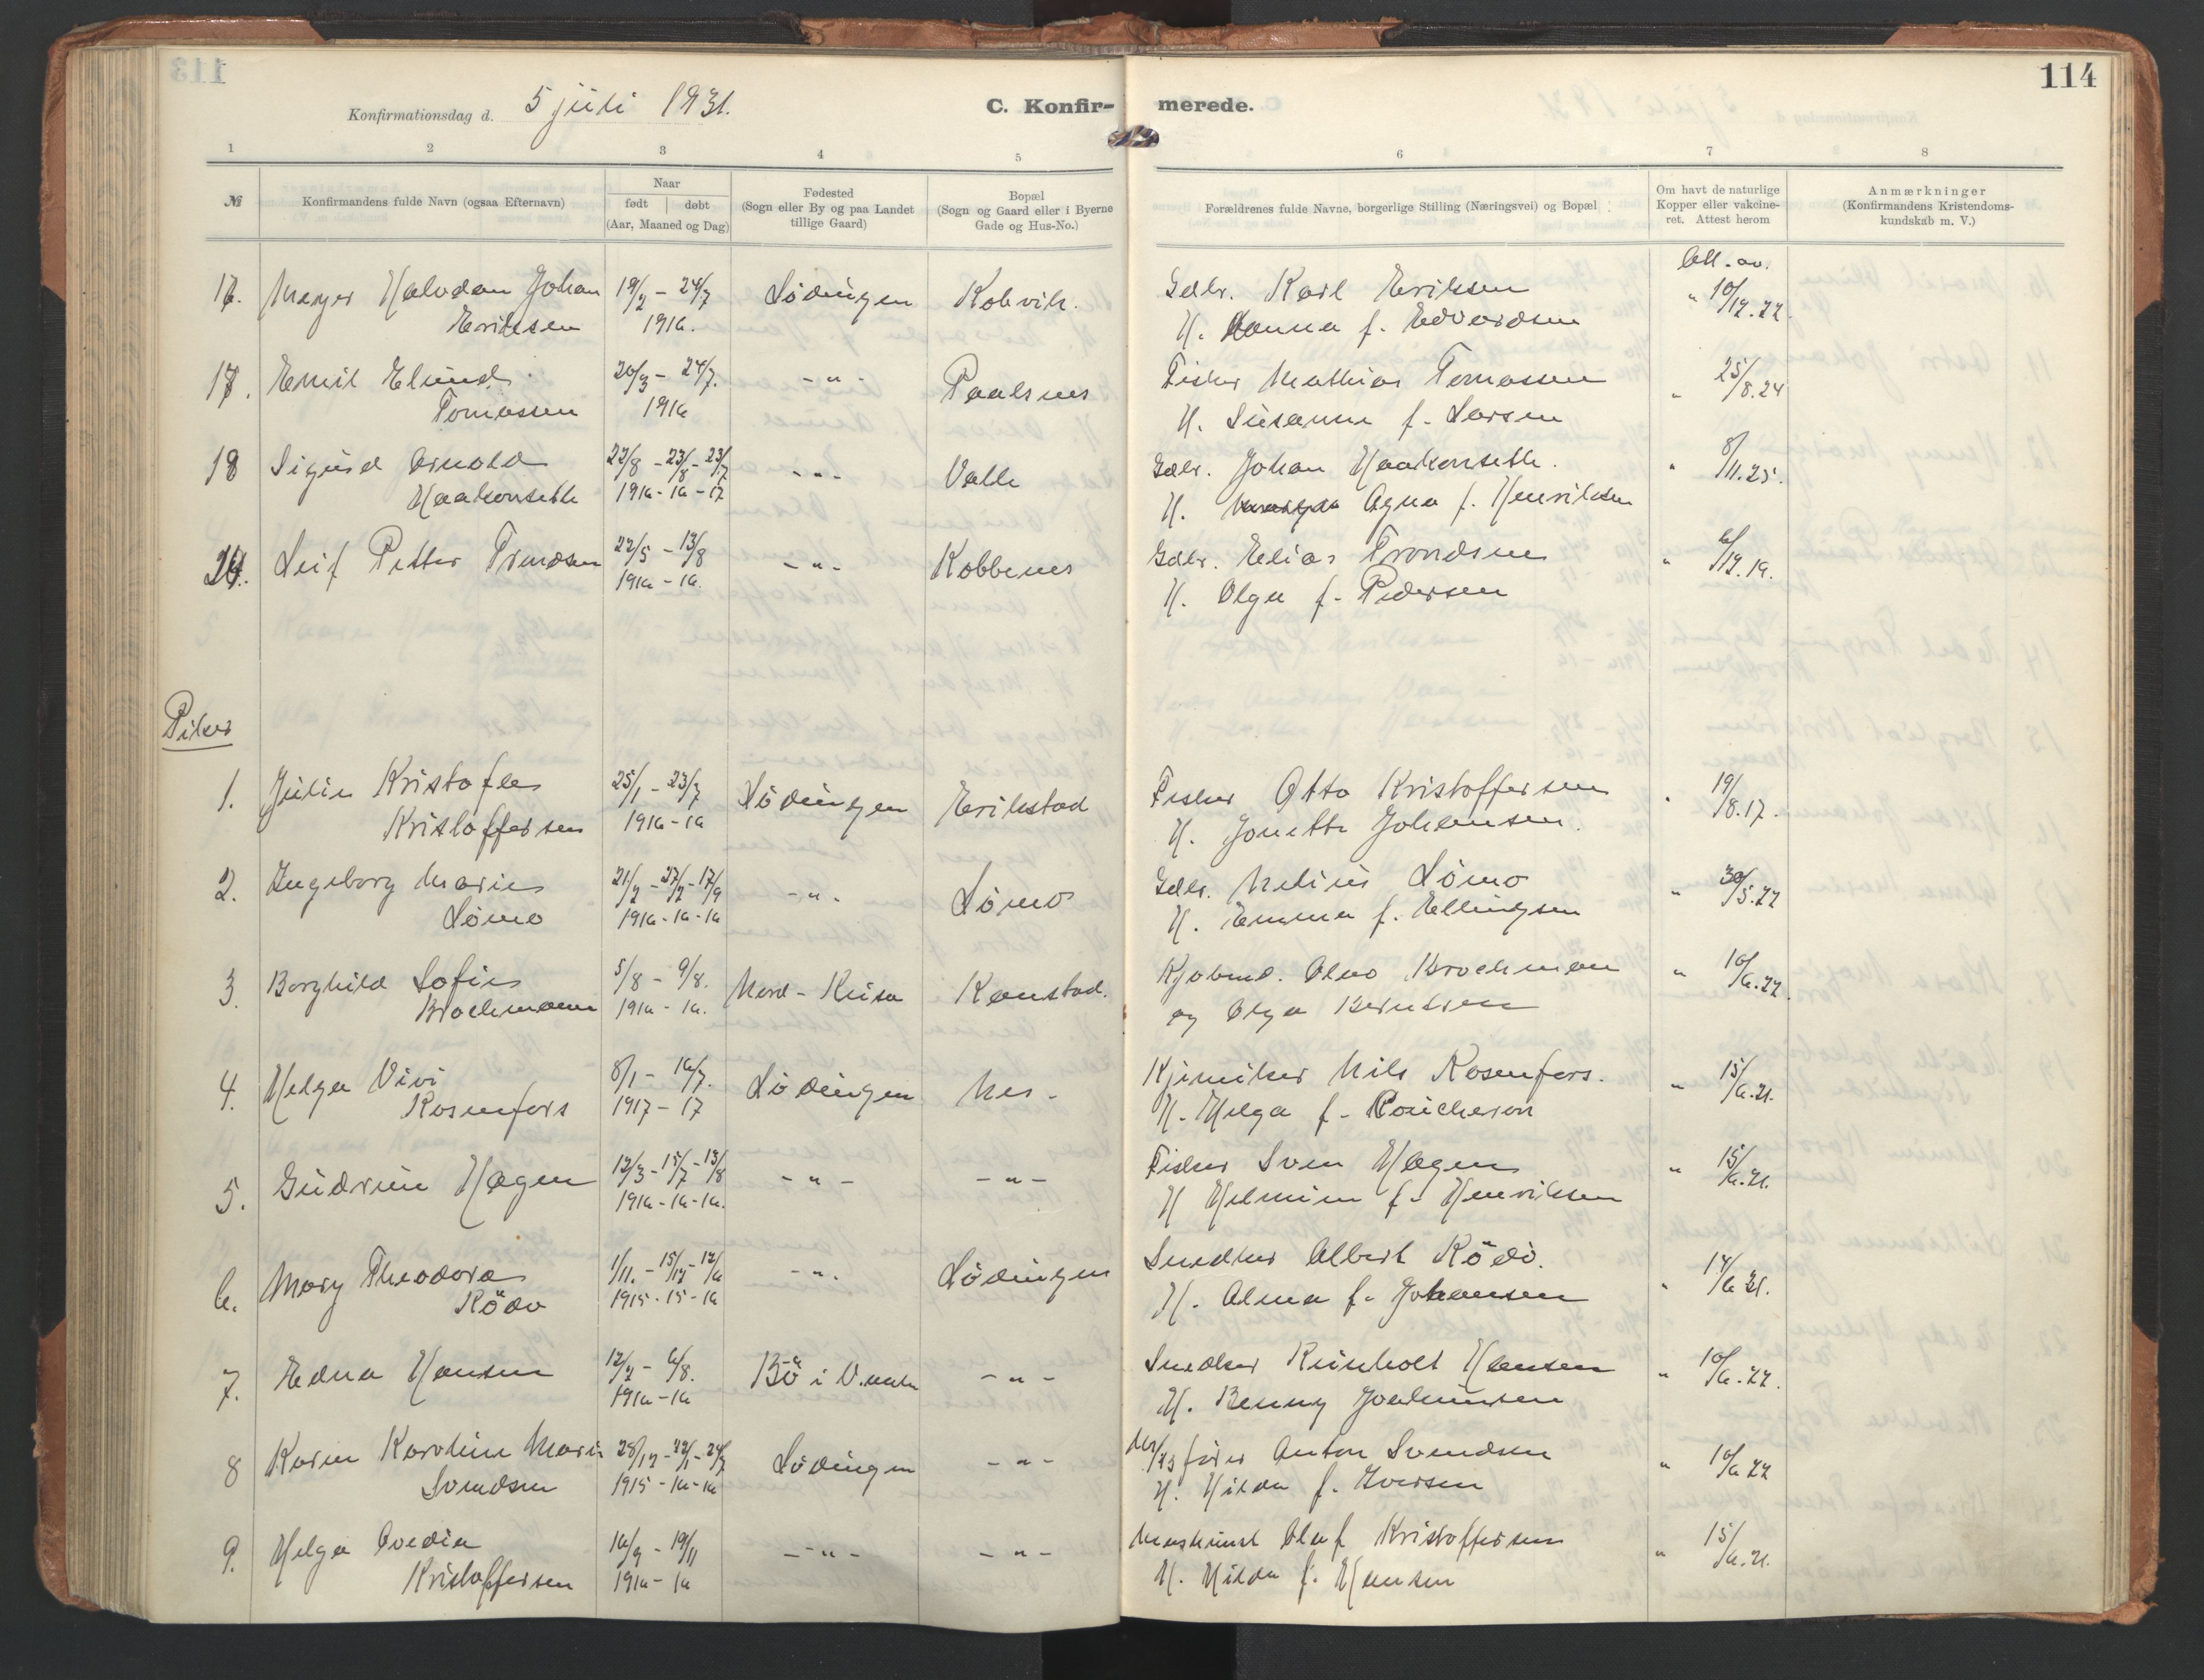 114
Konfirmationsdag d. 5 juli 1931.
C. Konfir-merede.
1 2 3 4 5 6 7 8
№
Konfirmandens fulde Navn (ogsaa Efternavn)
Naar
født | døbt
(Aar, Maaned og Dag)
Fødested
(Sogn eller By og paa Landet
tillige Gaard)
Bopæl
(Sogn og Gaard eller i Byerne
Gade og Hus-No.)
Forældrenes fulde Navne, borgerlige Stilling (Næringsvei) og Bopæl
Om havt de naturlige
Kopper eller vakcine-
ret. Attest herom
Anmærkninger
(Konfirmandens Kristendoms-
kundskab m. V.)
Att. av.
16. Meyer Halvdan Johan 19/2 - 24/7 Lödingen Kobvik. Gdbr. Karl Eriksen " 10/12.22.
Eriksen 1916. H. Hanna f. Edvardsen
17. Emil Elund 20/3 - 24/7. - " - Paalsnes Fisker Mathias Tomassen " 25/8.24
Tomassen 1916 H. Susanna f. Larsen
18 Sigurd Arnold 22/8 - 23/8 - 23/7 - " - Valle Gdbr. Johan Haakonseth. " 8/11.25.
Haakonseth 1916-16-17 H. Agna f. Henriksen
Leif Petter Trondsen 22/5 - 13/8 - " - Kobbenes Gdbr. Elias Trondsen " 6/12.19.
1916-16. H. Olga f. Pedersen
Piker
1. Julie Kristofa 25/1 - 23/7 Lödingen Erikstad Fisker Otto Kristoffersen " 19/8.17.
Kristoffersen 1916-16 H. Jonette Johansen.
2. Ingeborg Marie 21/2 - 27/2 - 17/9 - " - Lömo Gdbr. Melius Lömo " 30/5.22
Lömo 1916-16-16 H. Emma f. Ellingsen
3. Borghild Sofie 5/8 - 9/8. Nord-Reisa Kanstad. Kjøbmd. Olav Brochmann " 10/6.22.
Brochmann 1916-16. og Olga Berntsen
4. Helga Vivi 8/1 - 16/7. Lödingen Nes. Kjemiker Nils Rosenfors. " 15/6.21.
Rosenfors 1917-17 H. Helga f. Poucheron
5. Gudrun Hagen 12/3 - 15/7 - 13/8 - " - - " - Fisker Sven Hagen " 15/6.21.
1916-16-16. H Helmine f. Henriksen
6. Mary Theodora 1/11. - 15/12 - 12/6 - " - Lödingen Snedker Albert Rödö. " 14/6 21.
Rödö 1915-15-16 H. Alma f. Johansen
7. Edna Hansen 12/2 - 6/8. Bö i V.aalen - " - Snedker Reinholt Hansen " 10/6.22.
1916-16 H. Benny Joakimsen
8 Karen Karoline Marie 28/12 - 22/1 - 24/7 Lödingen - " - förer Anton Svendsen " 10/6 22
Svendsen 1915-16-16 H. Hilda f. Iversen
9. Helga Ovedia 16/9 - 19/11 - " - - " - Maskinist Olaf Kristoffersen " 15/6.21.
Kristoffersen 1916-16 H. Hilda f. Hansen